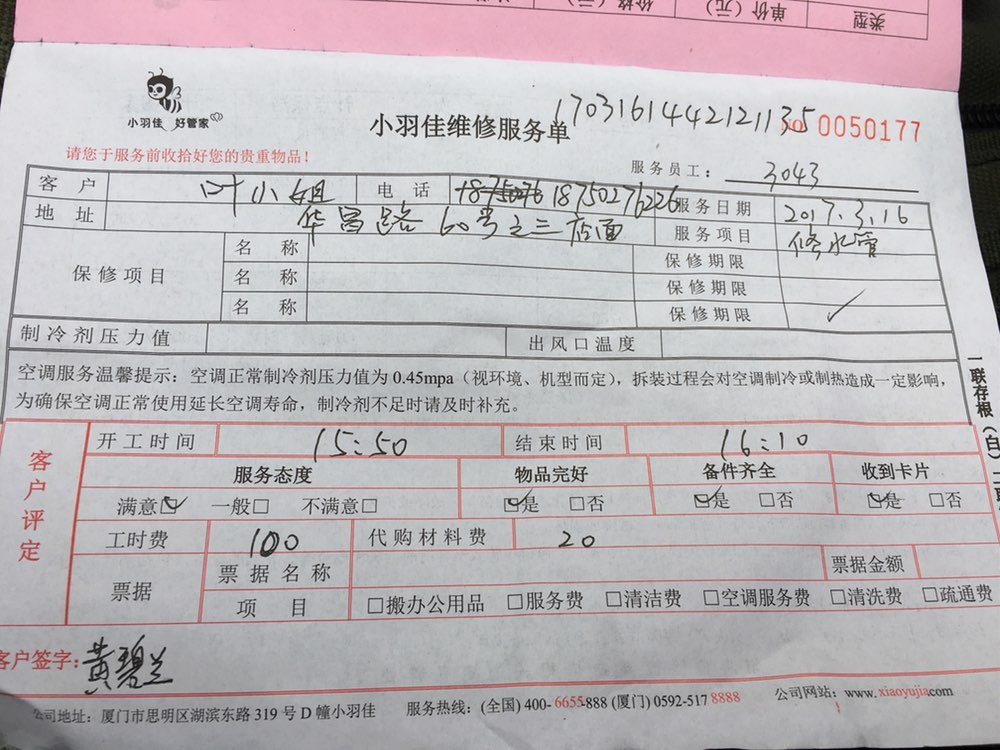 类型
单价（元）
价格（元）
小羽佳 好管家
小羽佳维修服务单
1703161442121135
NO 0050177
请您于服务前收拾好您的贵重物品！
服务员工： 3043
客户 叶小姐 电话 18750276226 服务日期 2017.3.16
地址 华昌路60号之三店面 服务项目 修水管
保修项目 名称 保修期限
名称 保修期限
名称 保修期限 ✓
制冷剂压力值 出风口温度
空调服务温馨提示：空调正常制冷剂压力值为0.45mpa（视环境、机型而定），拆装过程会对空调制冷或制热造成一定影响，
为确保空调正常使用延长空调寿命，制冷剂不足时请及时补充。
一联存根（白）
客户评定
开工时间 15:50 结束时间 16:10
服务态度 物品完好 备件齐全 收到卡片
满意☑ 一般□ 不满意□ ☑是 □否 ☑是 □否 ☑是 □否
工时费 100 代购材料费 20
票据 票据名称 票据金额
项目 □搬办公用品 □服务费 □清洁费 □空调服务费 □清洗费 □疏通费
客户签字：黄碧兰
公司地址：厦门市思明区湖滨东路319号D幢小羽佳 服务热线：(全国) 400-6655-888 (厦门) 0592-517 8888 公司网站：www.xiaoyujia.com